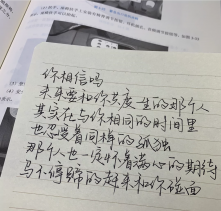 你相信吗
未来要和你共度一生的那个人
其实在与你相同的时间里
也忍受着同样的孤独
那个人也一定怀着满心的期待
马不停蹄的赶来和你碰面